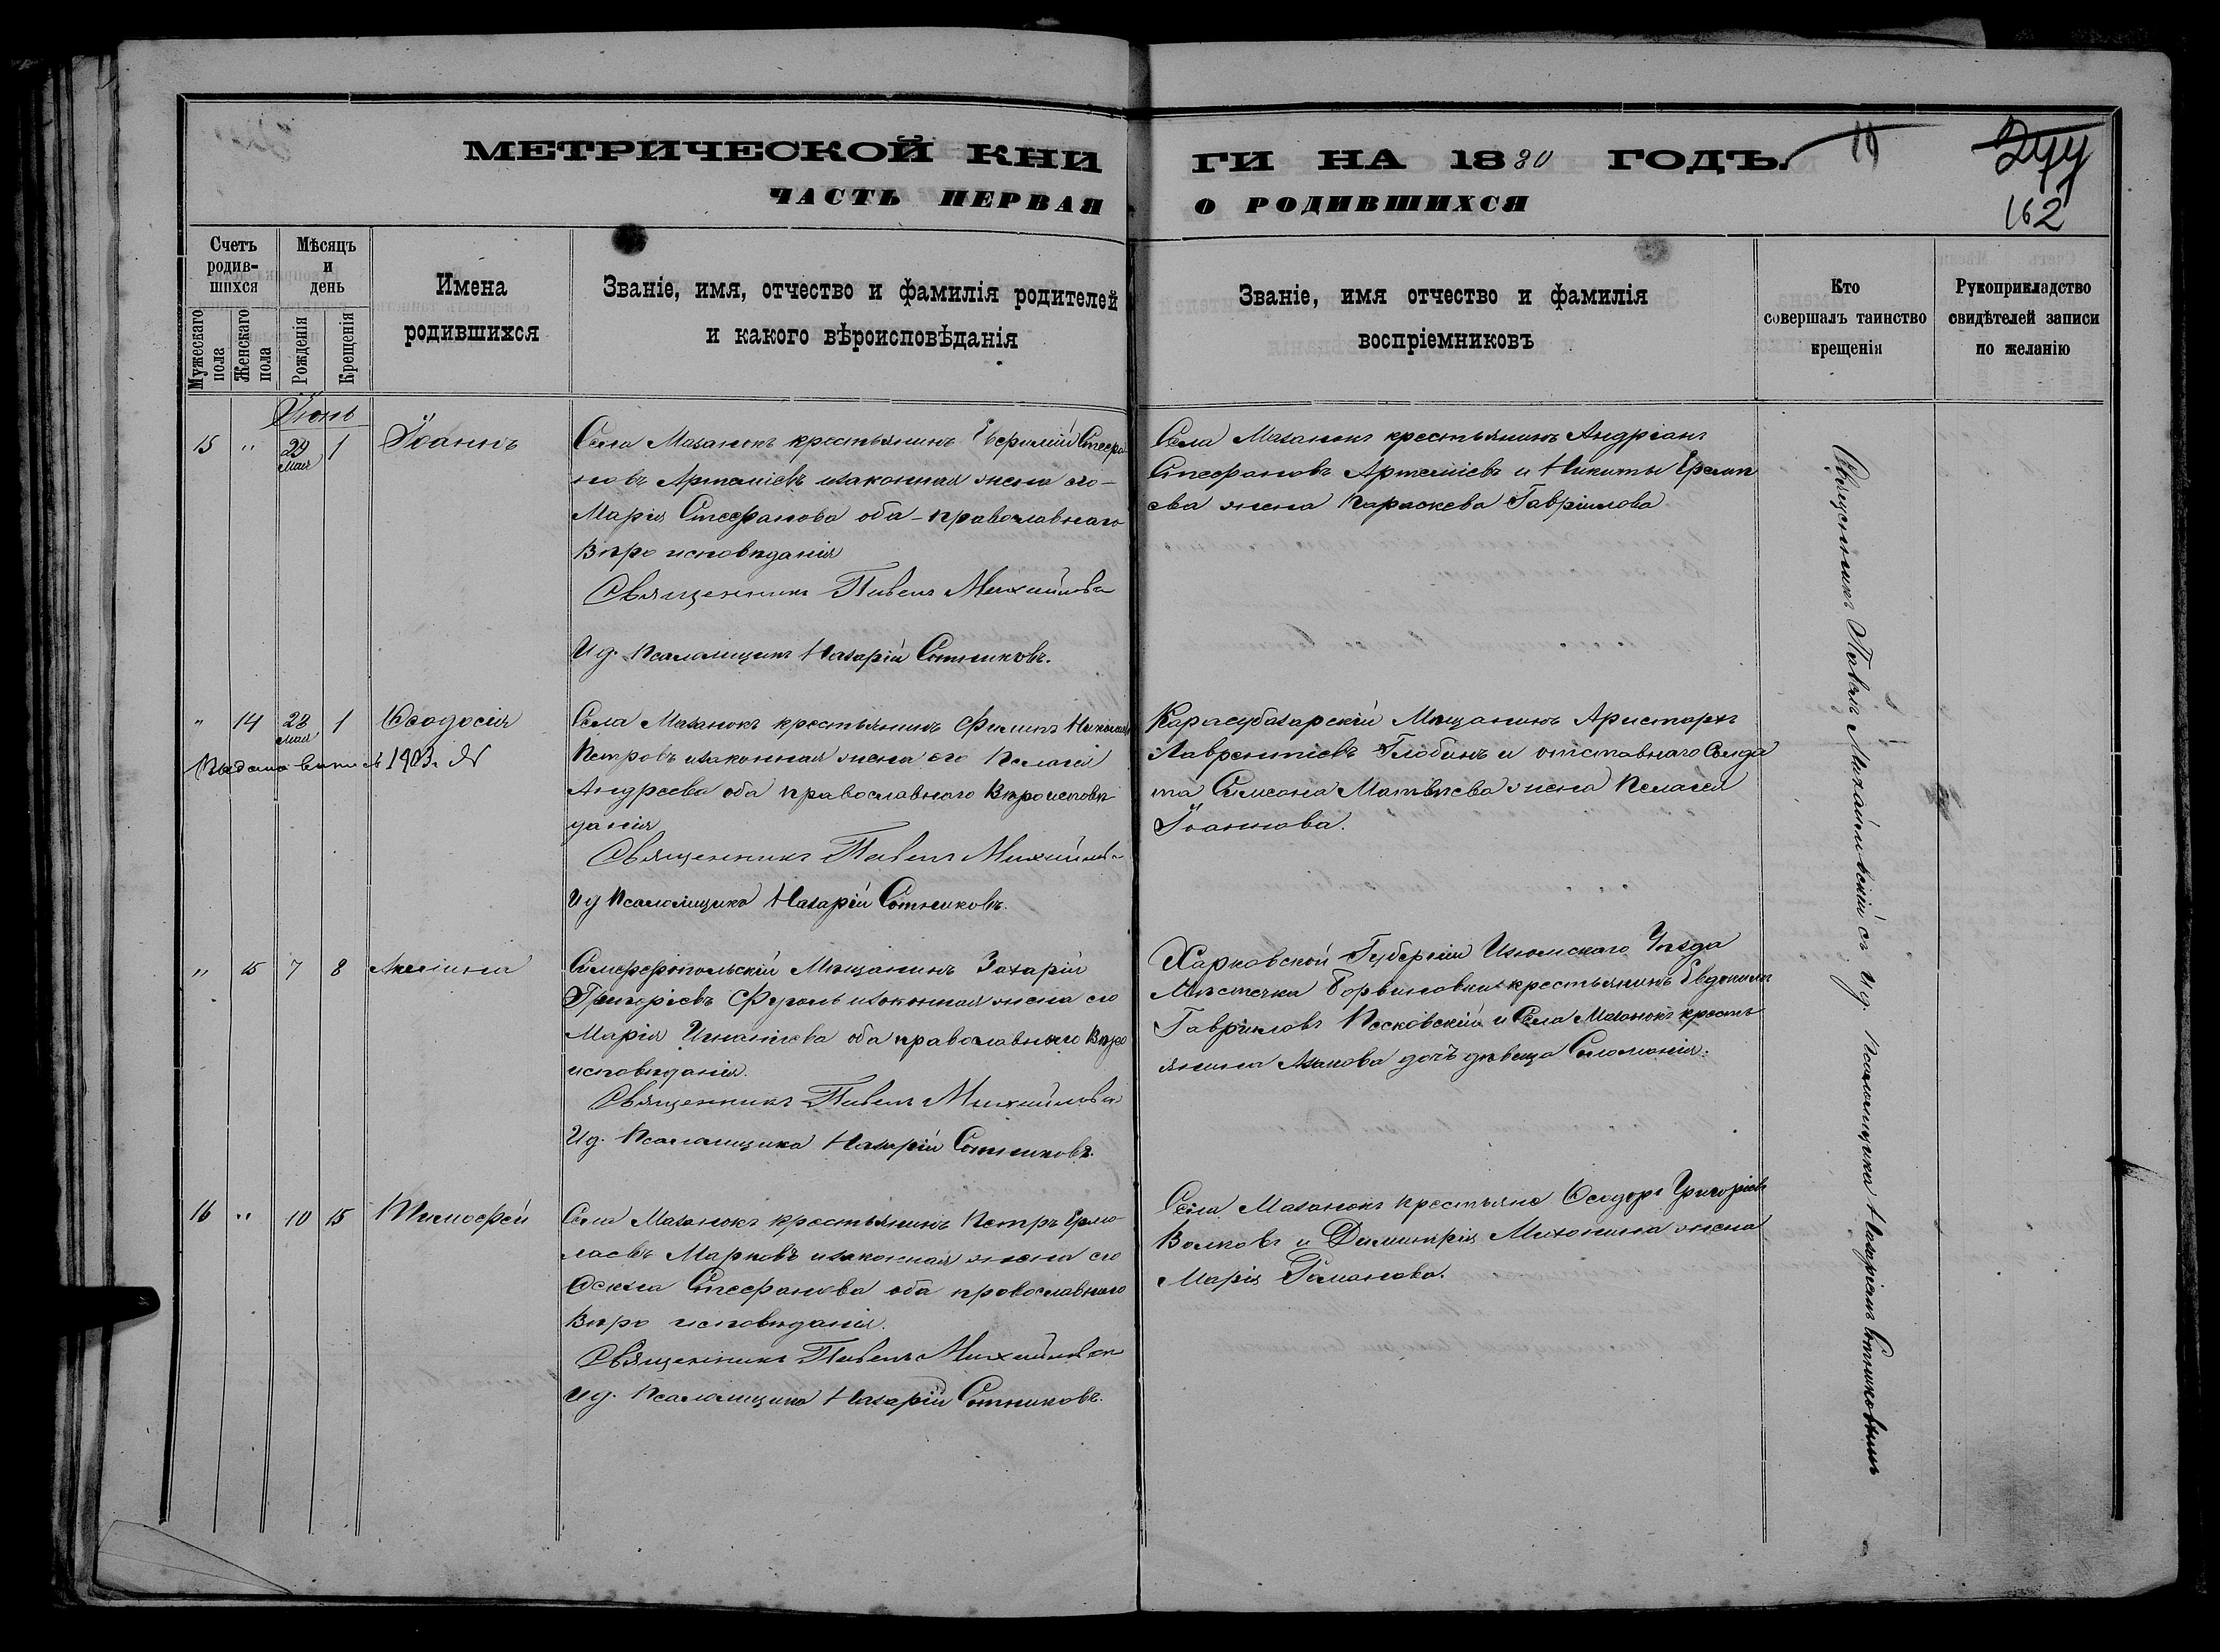 МЕТРИЧЕСКОЙ КНИГИ НА 1880 ГОДЪ.
ЧАСТЬ ПЕРВАЯ О РОДИВШИХСЯ
244
162
Счетъ родившихся
Мужескаго пола
Женскаго пола
Мѣсяцъ и день
Рожденія
Крещенія
Имена родившихся
Званіе, имя, отчество и фамилія родителей
и какого вѣроисповѣданія
Званіе, имя отчество и фамилія
воспріемниковъ
Кто
совершалъ таинство
крещенія
Рукоприкладство
свидѣтелей записи
по желанію
Іюнь
15 " 29 Мая 1 Іоаннъ
Села Мазанокъ крестьянинъ Евфимій Стефа
новъ Артеміевъ изаконная жена его
Марія Стефанова оба православнаго
Вѣро исповѣданія
Священникъ Павелъ Михайловск
И д. Псаломщикъ Назарій Сотниковъ.
Села Мазанокъ крестьянинъ Андріанъ
Стефановъ Артеміевъ и Никиты Еремѣ
ева жена Параскева Гавріилова
" 14 28 Мая 1 Феодосія
Выдана выпись 1903 г. №
Села Мазанокъ крестьянинъ Филипъ Николаев
Петровъ изаконная жена его Пелагія
Андреева оба православнаго Вѣроисповѣ
данія
Священникъ Павелъ Михайловск
И д Псаломщика Назарій Сотниковъ.
Карасубазарскій Мѣщанинъ Аристархъ
Лаврентіевъ Глобинъ и отставнаго Солда
та Симеона Матвѣева жена Пелагея
Іоаннова.
" 15 7 8 Акилина
Симферопольскій Мѣщанинъ Захарій
Григоріевъ изаконная жена его
Марія Игнатіева оба православнаго Вѣро
исповѣданія.
Священникъ Павелъ Михайловск
И д. Псаломщика Назарій Сотниковъ.
Харковской Губерніи Изюмскаго Уѣзда
Мѣстечка крестьянинъ Евдокимъ
Гавриловъ Песковскій и Села Мазанокъ кресть
янина дочь дѣвица Соломонія.
16 " 10 15 Тимофей
Села Мазанокъ крестьянинъ Петръ Ермо
лаевъ Марковъ изаконная жена его
Стефанова оба православнаго
Вѣро исповѣданія.
Священникъ Павелъ Михайловск
И д. Псаломщика Назарій Сотниковъ.
Села Мазанокъ крестьяне Феодоръ Григоріевъ
Волковъ и Димитрія Михонина жена
Марія Романова.
Священникъ Павелъ Михайловскій съ И д. Псаломщика Назаріемъ Сотниковымъ